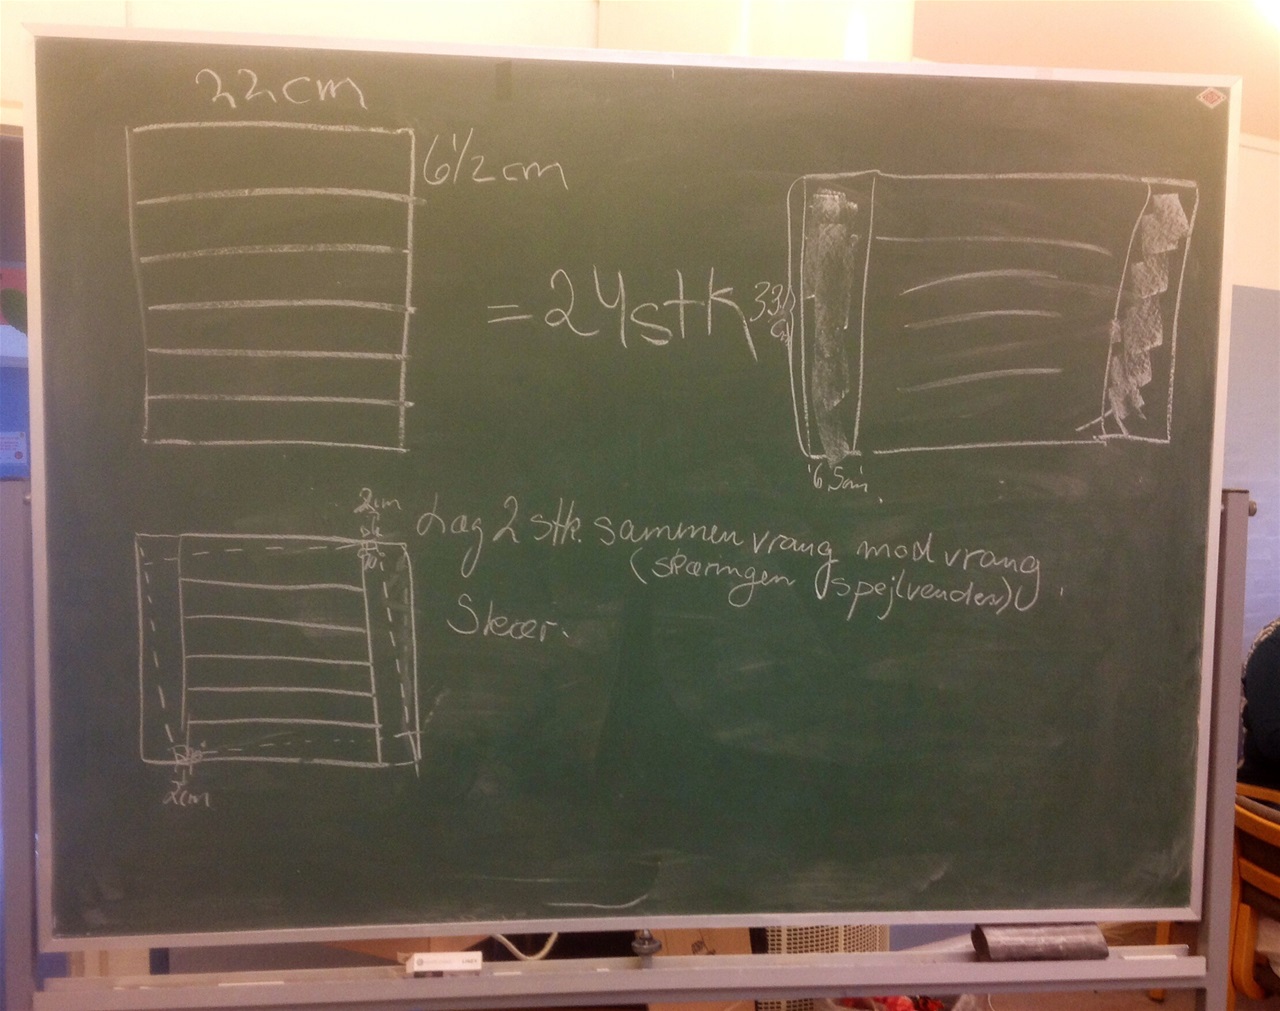 22cm
6 1/2 cm
= 24stk
33 1/2 cm
6,5cm.
2cm
Læg 2 stk. sammen vrang mod vrang
(skæringen spejlvendes).
Skær.
2cm